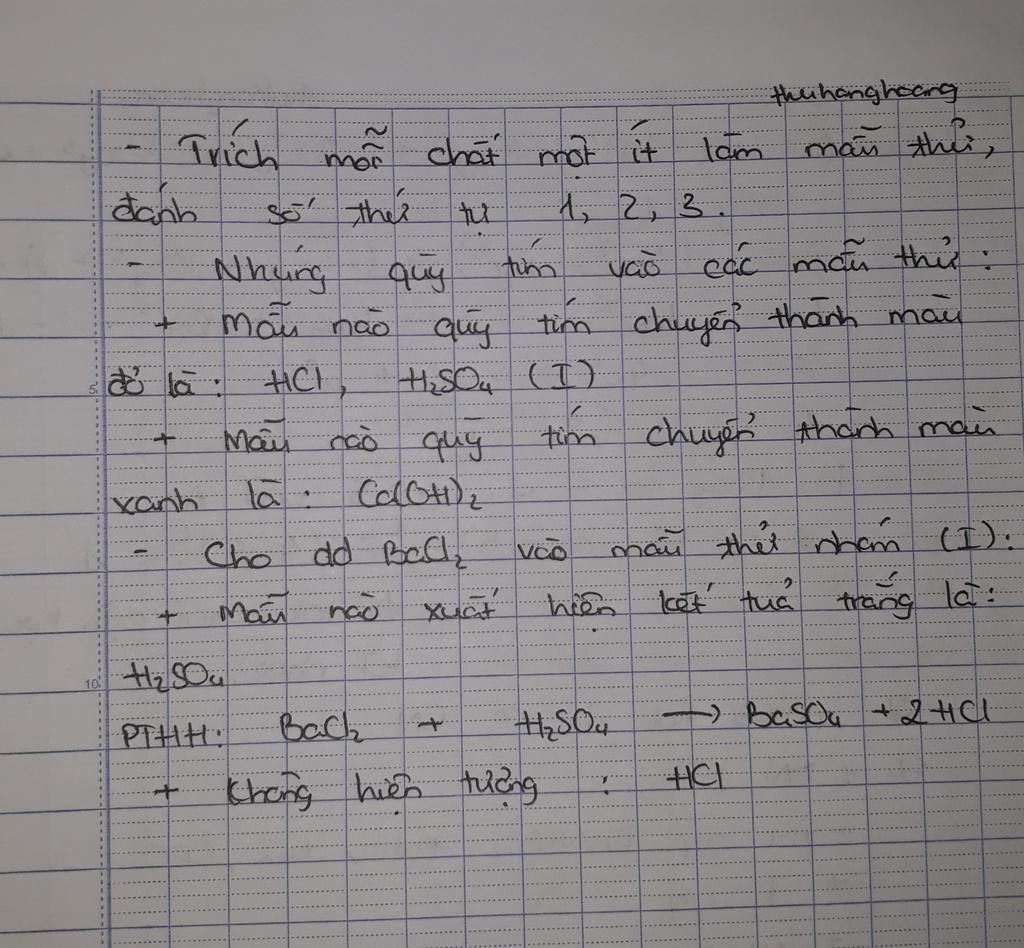 thuhanghoang
- Trích mỗi chất một ít làm mẫu thử,
đánh số thứ tự 1, 2, 3.
- Nhúng quỳ tím vào các mẫu thử:
+ Mẫu nào quỳ tím chuyển thành màu
đỏ là: HCl, H₂SO₄ (I)
+ Mẫu nào quỳ tím chuyển thành màu
xanh là: Ca(OH)₂
- Cho dd BaCl₂ vào mẫu thử nhóm (I):
+ Mẫu nào xuất hiện kết tủa trắng là:
H₂SO₄
PTHH: BaCl₂ + H₂SO₄ → BaSO₄ + 2HCl
+ Không hiện tượng : HCl
5
10